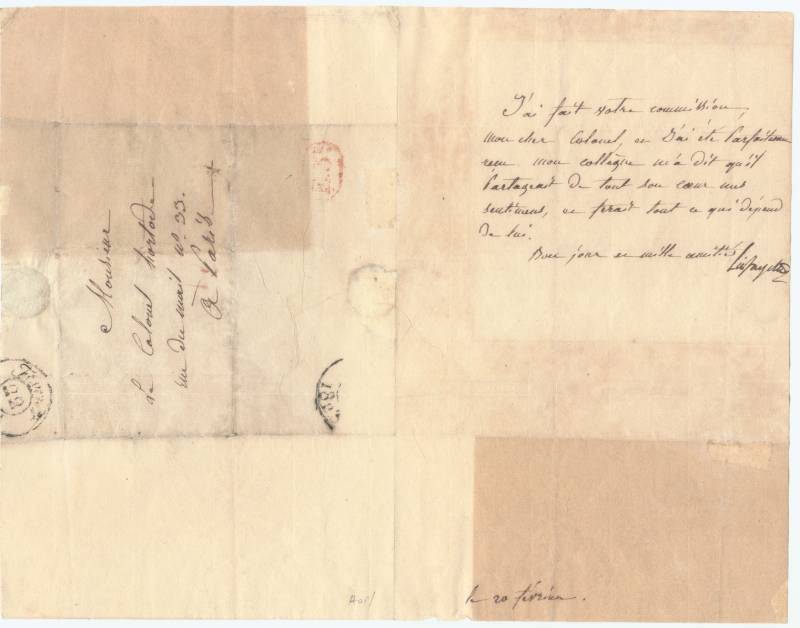 J'ai fait votre commission,
mon cher Colonel, et j'ai été parfaitement
reçu mon collègue m'a dit qu'il
partageait de tout son cœur mes
sentimens, et ferait tout ce qui dépend
de lui.
Bon jour et mille amitiés
Lafayette
le 20 février.
Monsieur
Le Colonel
rue du mail nº 33.
A Paris